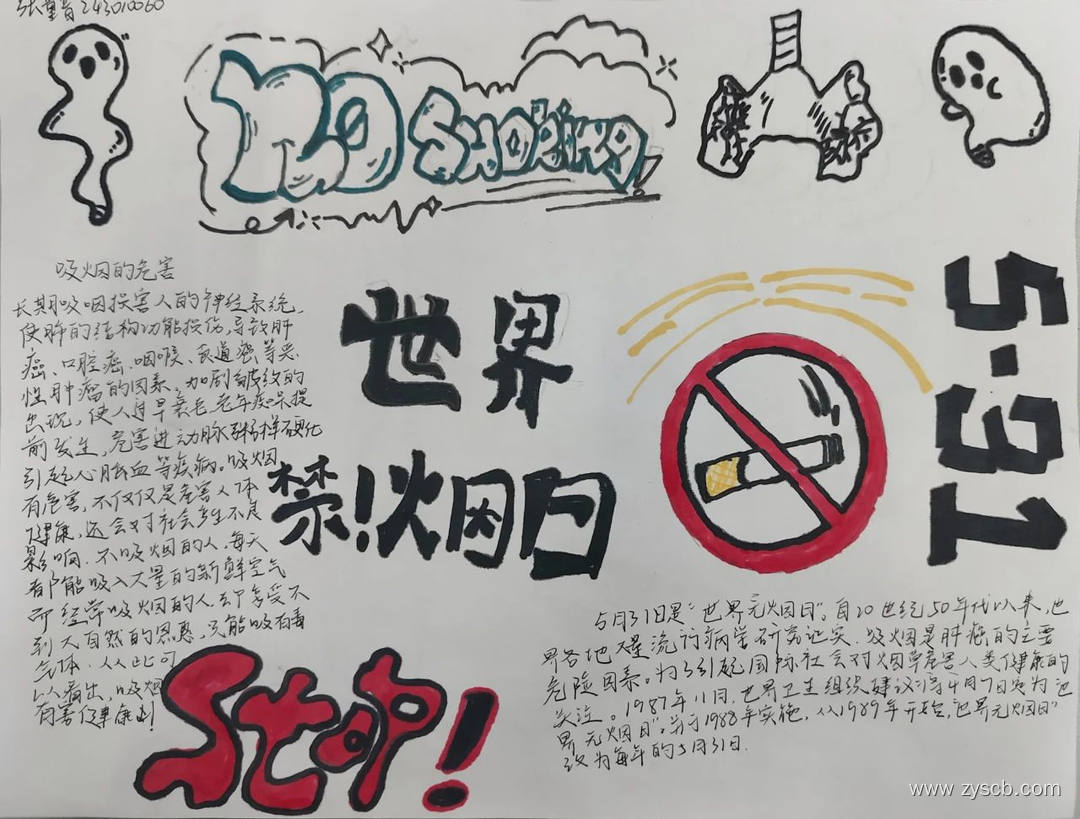 243010060
NO SMOKING
吸烟的危害
长期吸咽损害人的神经系统,
使肺的结构功能损伤,导致肝
癌、口腔癌、咽喉、食道癌等恶
性肿瘤的因素,加剧皱纹的
出现,使人过早衰老,老年痴呆提
前发生,危害进动脉粥样硬化
引起心脏血等疾病。吸烟
有危害,不仅仅是危害人体
健康,还会对社会产生不良
影响.不吸烟的人,每天
都能吸入大量的新鲜空气
而经常吸烟的人,却享受不
到大自然的恩惠,只能吸有毒
气体.从此可
以看出,吸烟
有害健康
世界
禁!烟日
5·31
STOP!
5月31日是"世界无烟日"。自20世纪50年代以来,也
界各地大量流行病学研究证实.吸烟是肺癌的主要
危险因素。为了引起国际社会对烟草危害人类健康的
关注。1987年11月,世界卫生组织建议将4月7日定为世
界无烟日",并于1988年实施,从1989年开始,"世界无烟日"
改为每年的5月31日.
www.zyscb.com